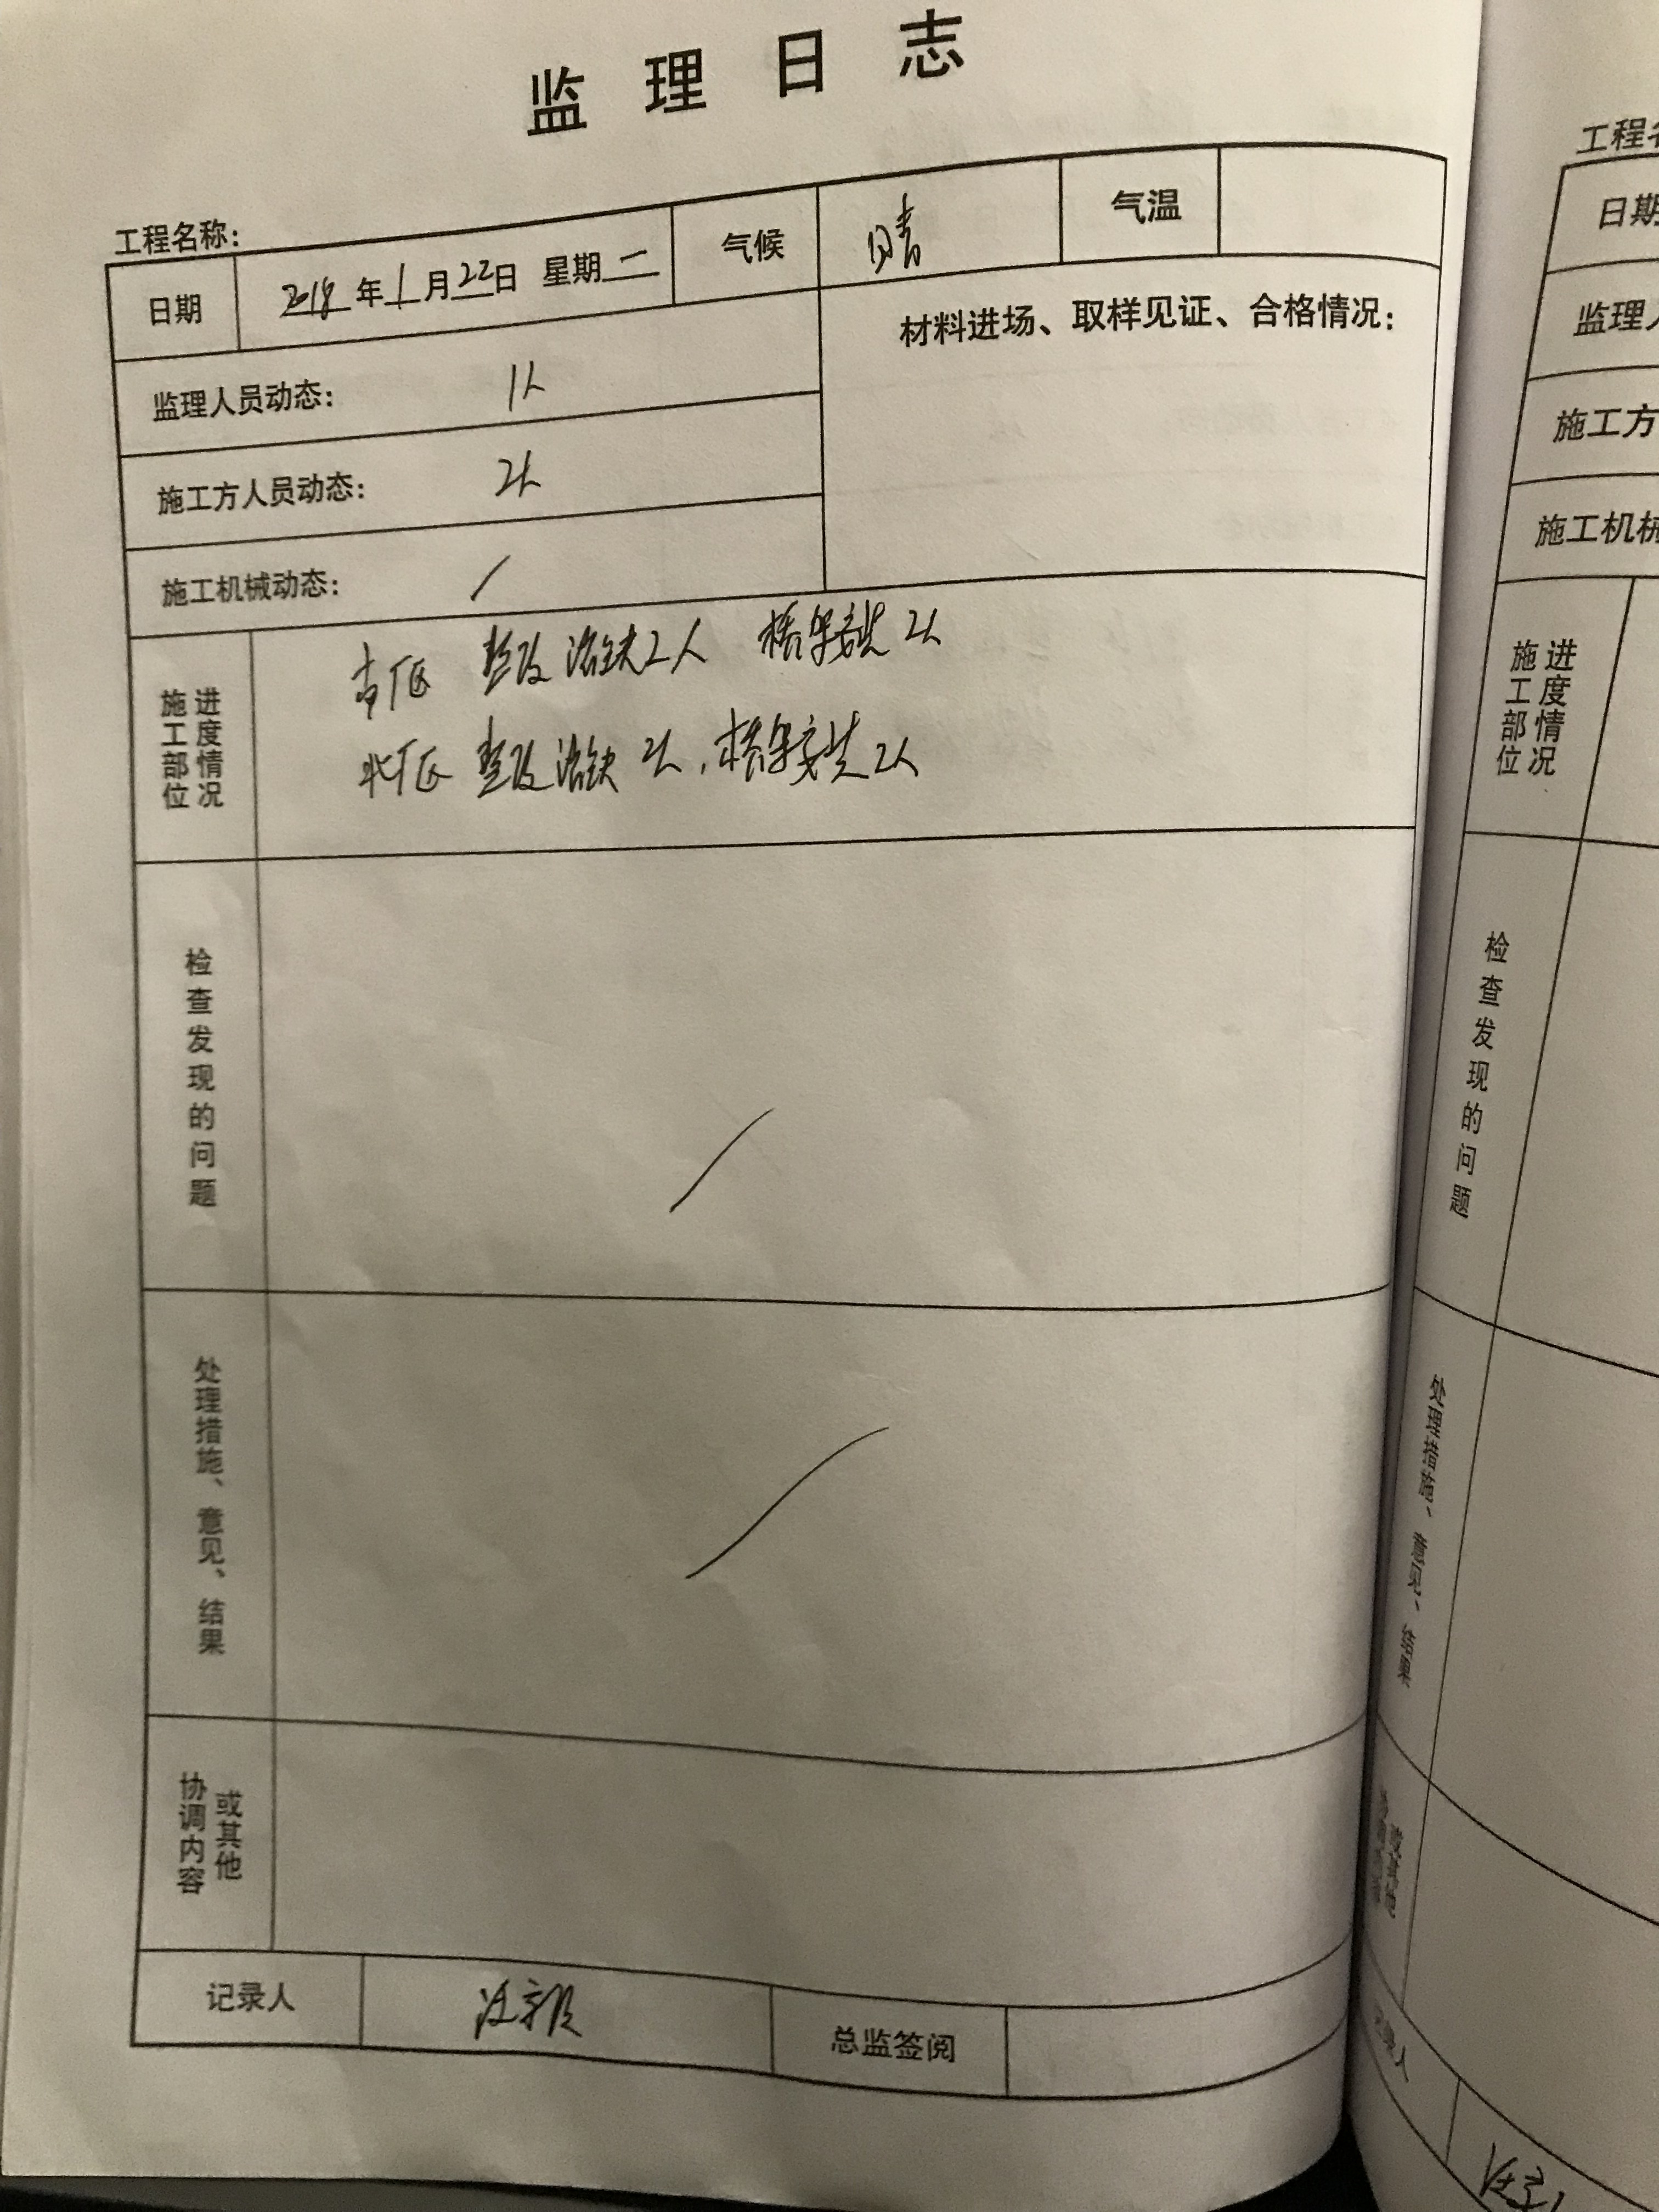 监理日志
工程名称：
日期 2018年1月22日 星期二 气候 晴 气温
材料进场、取样见证、合格情况：
监理人员动态： 1人
施工方人员动态： 2人
施工机械动态： /
施工部位 进度情况
南厂区 整改消缺2人 桥架安装2人
北厂区 整改消缺2人，桥架安装2人
检查发现的问题 /
处理措施、意见、结果 /
协调内容或其他
记录人
总监签阅
工程名
日期
监理人
施工方
施工机械
施工部位 进度情况
检查发现的问题
处理措施、意见、结果